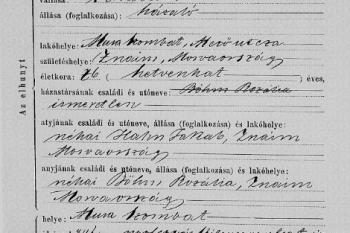 állása (foglalkozása): házaló
lakóhelye: Mura szombat, Mező utcza
születéshelye: Znaim, Morvaország
életkora: 76 (hetvenhat) éves,
házastársának családi és utóneve: Böhm Rozália
ismeretlen
atyjának családi és utóneve, állása (foglalkozása) és lakóhelye:
néhai Hahn Jakab, Znaim
Morvaország
anyjának családi és utóneve, állása (foglalkozása) és lakóhelye:
néhai Böhm Rozália, Znaim
Morvaország
helye: Mura szombat
Az elhunyt